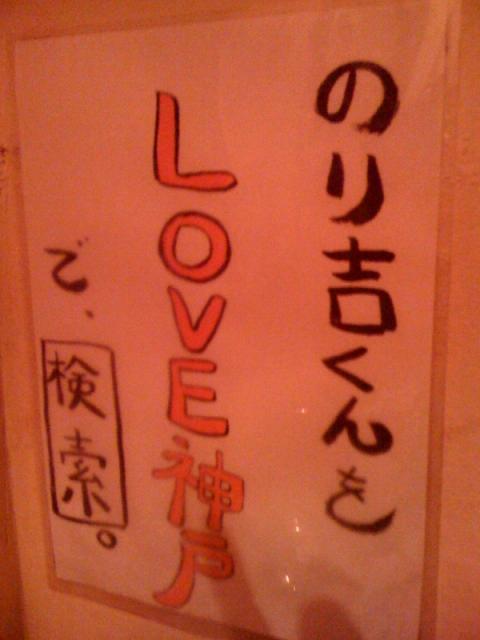 のり吉くんを
LOVE神戸
で、検索。